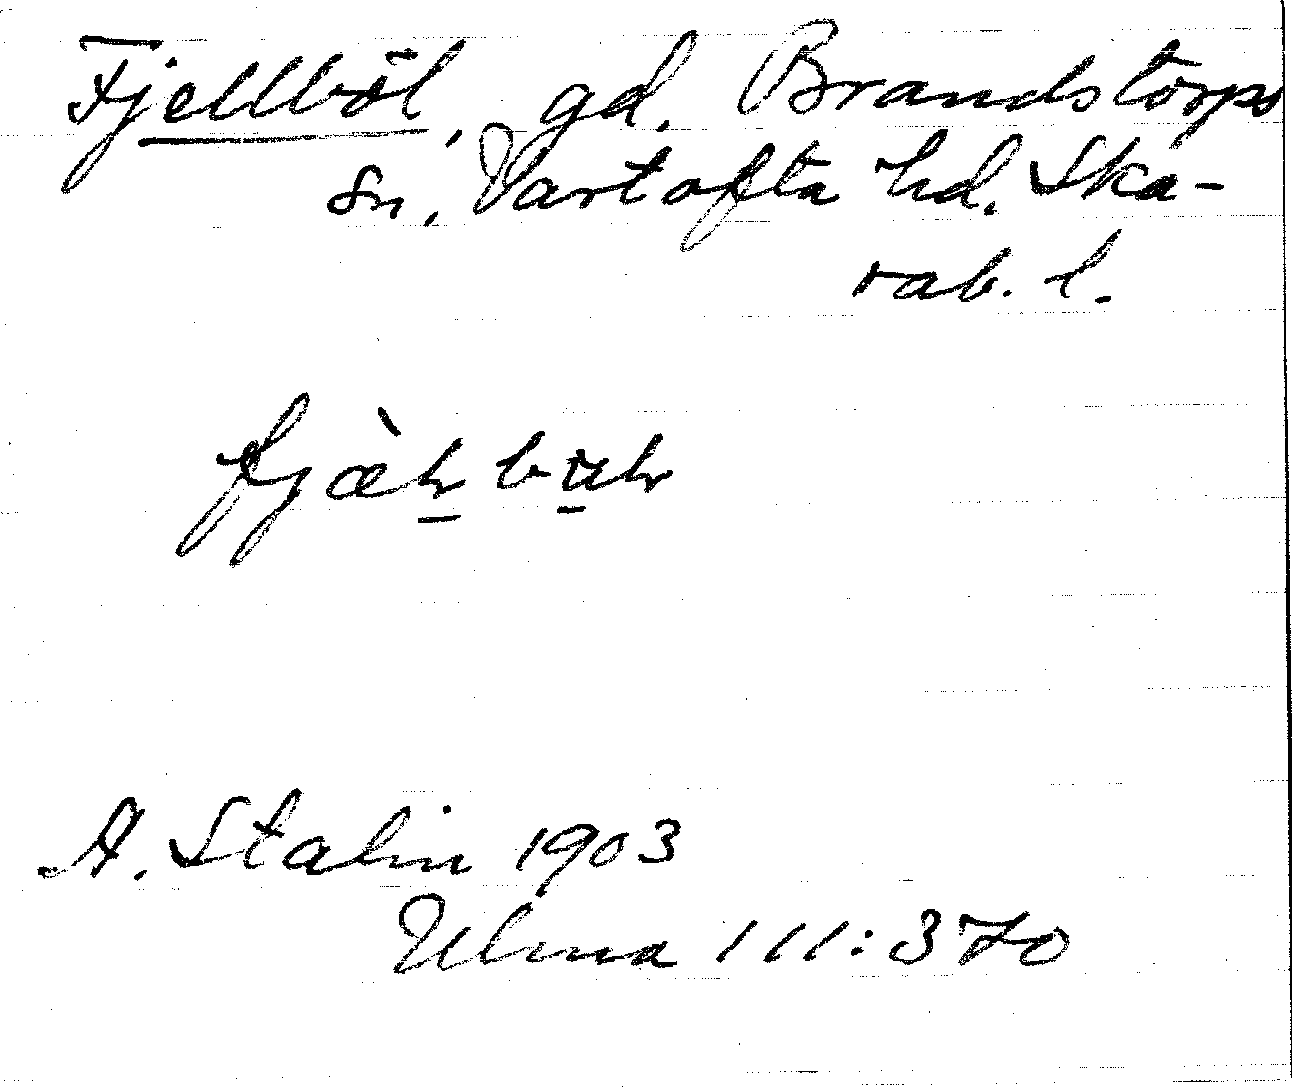 Fjellböl, gd. Brandstorps
sn. Vartofta hd. Ska-
rab. l.
A. Stalin 1903
Ulma 111:370